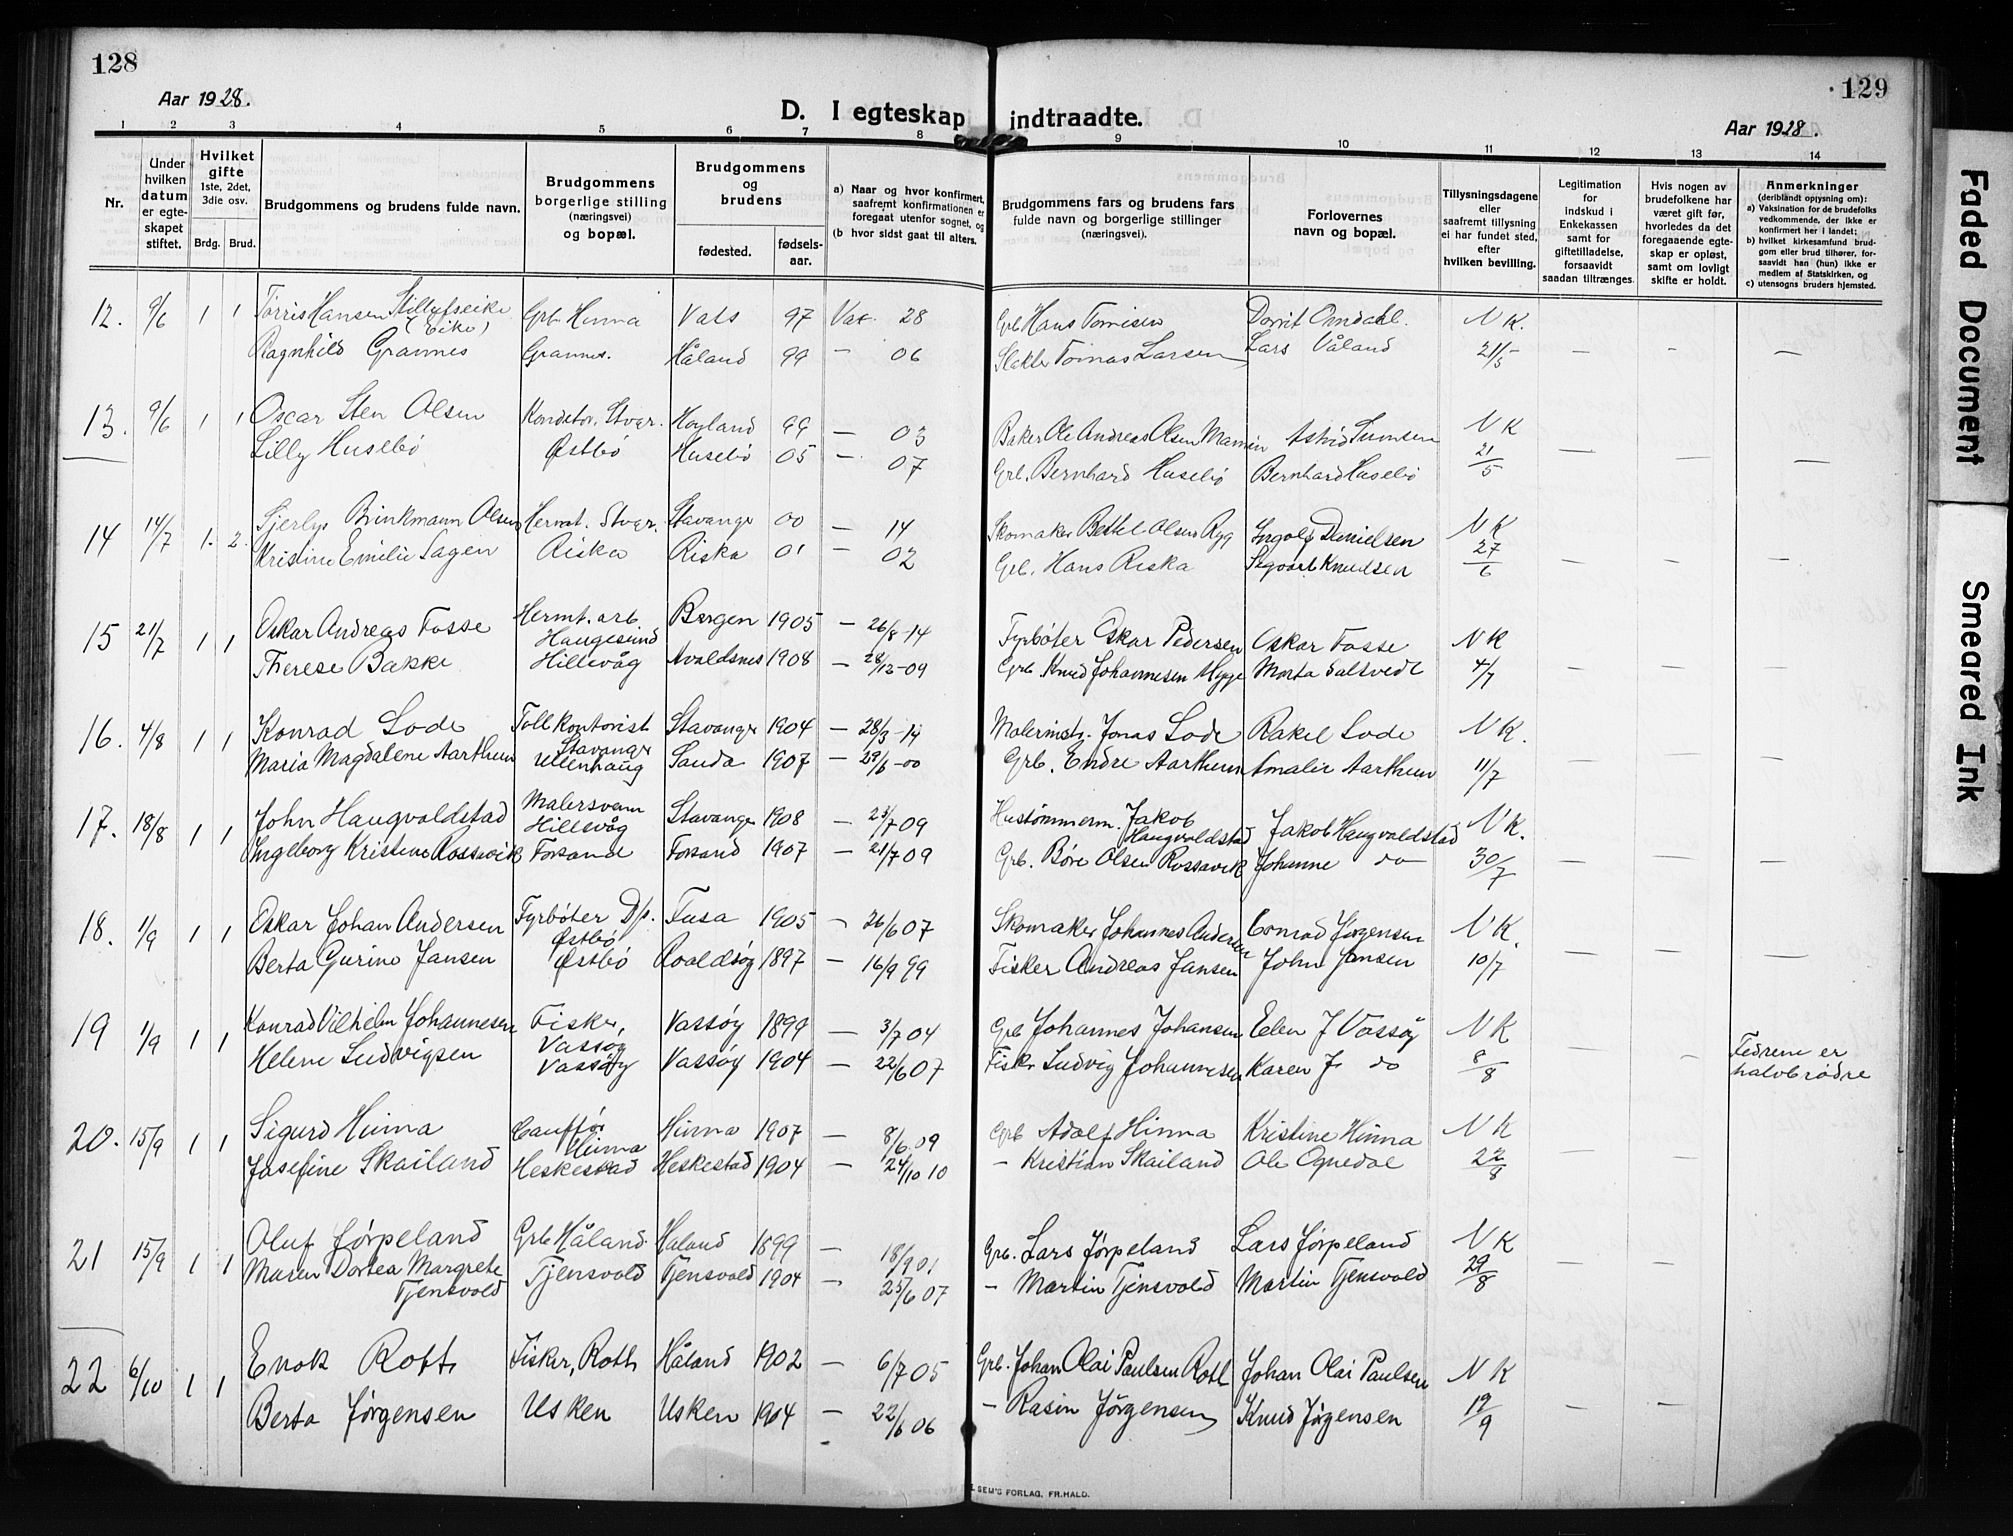 128
Aar 1928.
D. I egteskap indtraadte.
129
Aar 1928.
1 2 3 4 5 6 7 8 9 10 11 12 13 14
Nr.
Under hvilken datum er egteskapet stiftet.
Hvilket gifte
1ste, 2det, 3die osv.
Brdg. Brud.
Brudgommens og brudens fulde navn.
Brudgommens borgerlige stilling (næringsvei) og bopæl.
Brudgommens og brudens
fødested. fødsels-aar.
a) Naar og hvor konfirmert, saafremt konfirmationen er foregaat utenfor sognet, og
(b hvor sidst gaat til alters.
Brudgommens fars og brudens fars fulde navn og borgerlige stillinger (næringsvei).
Forlovernes navn og bopæl.
Tillysningsdagene eller saafremt tillysning ei har fundet sted, efter hvilken bevilling.
Legitimation for indskud i Enkekassen samt for giftetilladelse, forsaavidt saadan tiltrænges.
Hvis nogen av brudefolkene har været gift før, hvorledes da det foregaaende egteskap er opløst, samt om lovligt skifte er holdt.
Anmerkninger
(deriblandt oplysning om):
a) Vaksination for de brudefolks vedkommende, der ikke er konfirmert her i landet;
b) hvilket kirkesamfund brudgom eller brud tilhører, forsaavidt han (hun) ikke er medlem af Statskirken, og
c) utensogns bruders hjemsted.
12. 9/6 1 1 Tørris Hansen (Eike) Grb Hinna Vats 97 28 Grb Hans Dorrit Omdahl. N K.
Ragnhild Grannes Grannes. Håland 99 — 06 Tomas Larsen Lars Våland 21/5 — — —
13. 9/6 1 1 Oscar Sten Olsen Høyland 99 — 03 Baker Ole Andreas Olsen N K
Lilly Husebø Østbø Husebø 05 — 07 Grb. Bernhard Husebø Bernhard Husebø 21/5 — — —
14 14/7 1. 2. Brinkmann Olsen Stavanger 00 — 14 Skomaker Olsen Ingolf Danielsen N K
Kristine Emilie Sagen Riska Riska 01 — 02 Grb. Hans Riska Knudsen 27/6 — — —
15 21/7 1 1 Oskar Andreas Fosse Hermt. arb. Haugesund Bergen 1905 — 26/8-14 Fyrbøter Oskar Pedersen Oskar Fosse N K
Therese Bakke Hillevåg Avaldsnes 1908 — -09 Grb. Knud Johannesen Marta 4/7
16. 4/8 1 1 Konrad Lode Tollkontorist Stavanger Stavanger 1904 — 28/3-14 Malermstr. Jonas Lode Rakel Lode N K.
Maria Magdalene Aarthun Ullenhaug Sauda 1907 — 29/6-00 Grb. Endre Aarthun Amalie Aarthun 11/7 — —
17. 18/8 1 1 John Haugvaldstad Malersvenn Hillevåg Stavanger 1908 — 23/7 09 Hustømmerm. Jakob Haugvaldstad Jakob Haugvaldstad N K.
Ingeborg Kristine Rossavik Forsand Forsand 1907 — 21/7 09 Grb. Børe Olsen Rossavik Johanne do 30/7 — — —
18. 1/9 1 1 Oskar Johan Andersen Fyrbøter D/s. Østbø Fusa 1905 — 26/6 07 Skomaker Johannes Andersen Conrad Jørgensen N K.
Berta Gurine Jansen Østbø Roaldsøy 1897 — 16/9 99 Fisker Andreas Jansen John Jansen 10/7 — — —
19 1/9 1 1 Konrad Vilhelm Johannesen Fisker, Vassøy Vassøy 1899 — 3/7 04 Grb Johannes Johansen Elen J Vassøy N K
Helene Ludvigsen Vassøy Vassøy 1904 — 22/6 07 Fisker Ludvig Johannesen Karen J. do 8/8 — — Fedrene er halvbrødre
20. 15/9 1 1 Sigurd Hinna Hinna Hinna 1907 — 8/6 09 Grb Adolf Hinna Kristine Hinna N K
Josefine Skailand Heskestad Heskestad 1904 — 24/10 10 — Kristian Skailand Ole Ognedal 22/8 — —
21 15/9 1 1 Oluf Jørpeland Grb Håland Håland 1899 — 18/9 01 Grb. Lars Jørpeland Lars Jørpeland N K
Maren Dortea Margrete Tjensvold Tjensvold Tjensvold 1904 — 25/6 07 — Martin Tjensvold Martin Tjensvold 29/8 — — —
22 6/10 1 1 Enok Rott Fisker, Rott Håland 1902 — 6/7 05 Grb. Johan Olai Paulsen Rott Johan Olai Paulsen N K
Berta Jørgensen Usken Usken 1904 — 22/6 06 — Rasin Jørgensen Knud Jørgensen 19/9 — —
SEM'S FORLAG, FR.HALD.
Faded Document
Smeared Ink